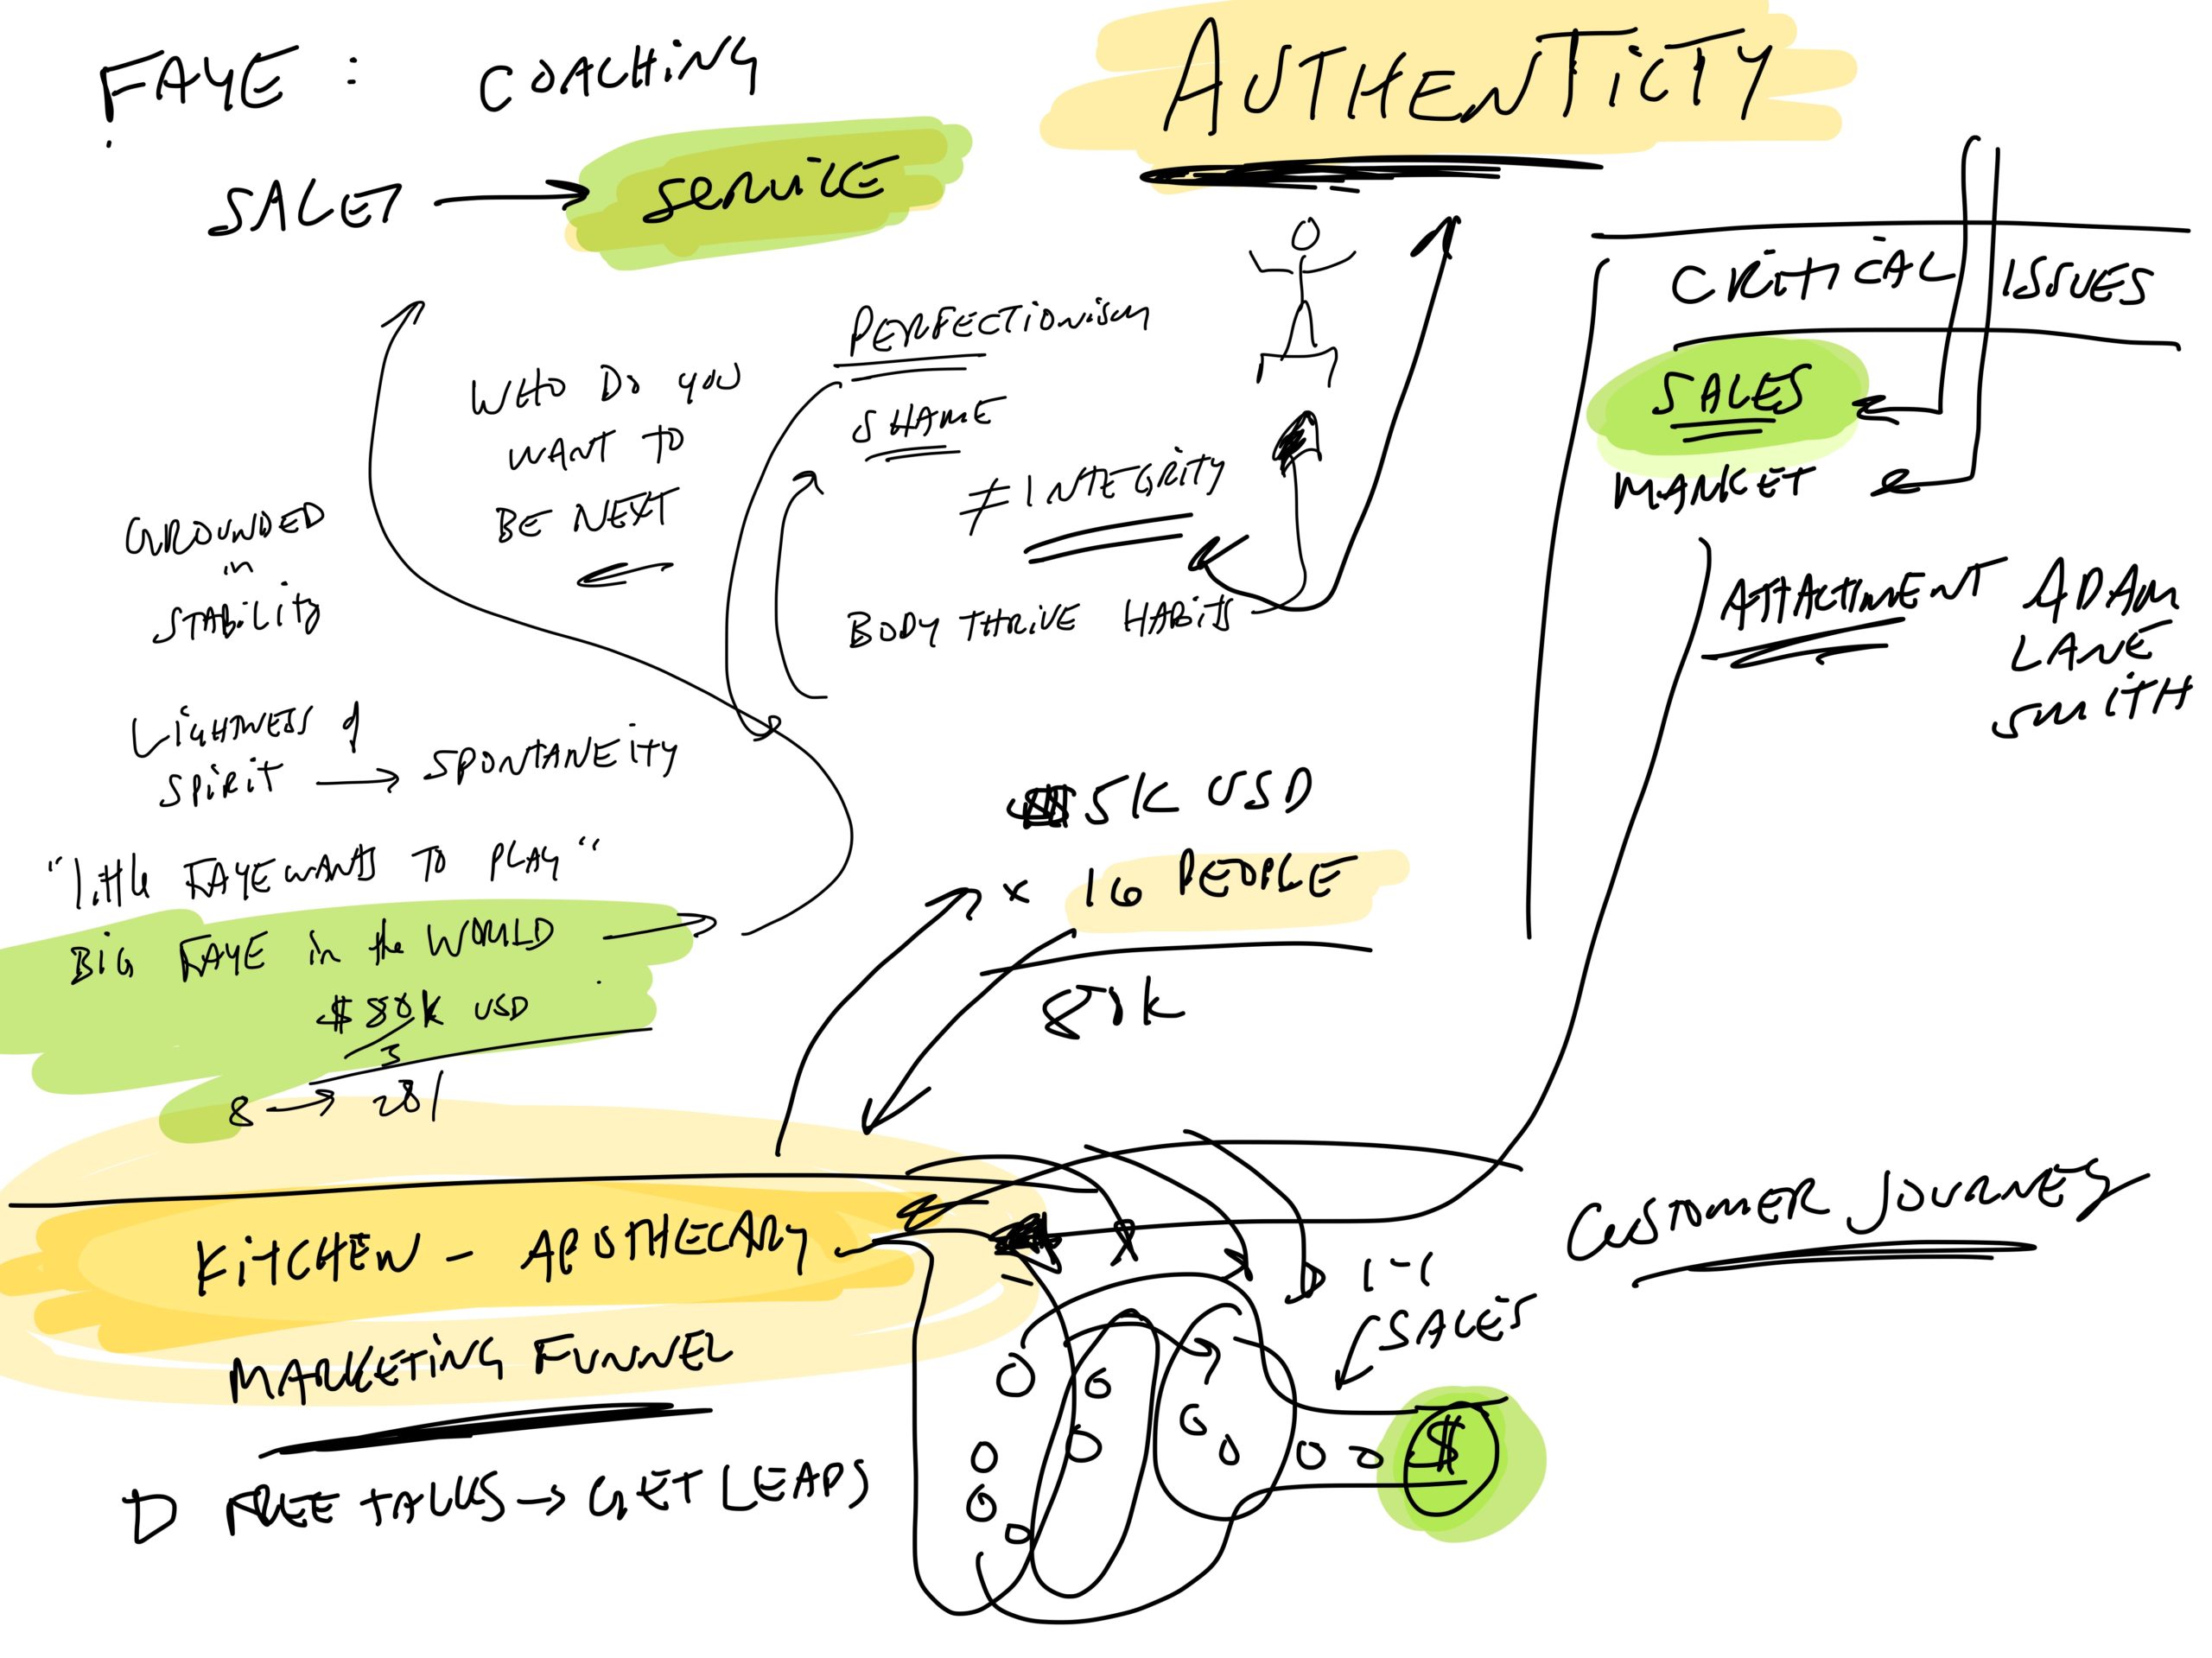 FAYE : COACHING
AUTHENTICTY
SALES → SERVICE
CRITICAL ISSUES
SALES
MARKET
ATTACHMENT ADAM
LANE
SMITH
PERFECTIONISM
SHAME
≠ INTEGRITY
BODY THRIVE HABITS
WHO DO YOU
WANT TO
BE NEXT
GROUNDED
in
STABILITY
LIGHTNESS of
SPIRIT → SPONTANEITY
"little FAYE WANTS TO PLAY"
BIG FAYE in the WORLD
$ 80K USD
3
8 → 28
5K USD
x 16 PEOPLE
80K
KITCHEN - APOTHECARY
MARKETING FUNNEL
FREE TALKS → GET LEADS
CUSTOMER JOURNEY
1-1
SALES
$